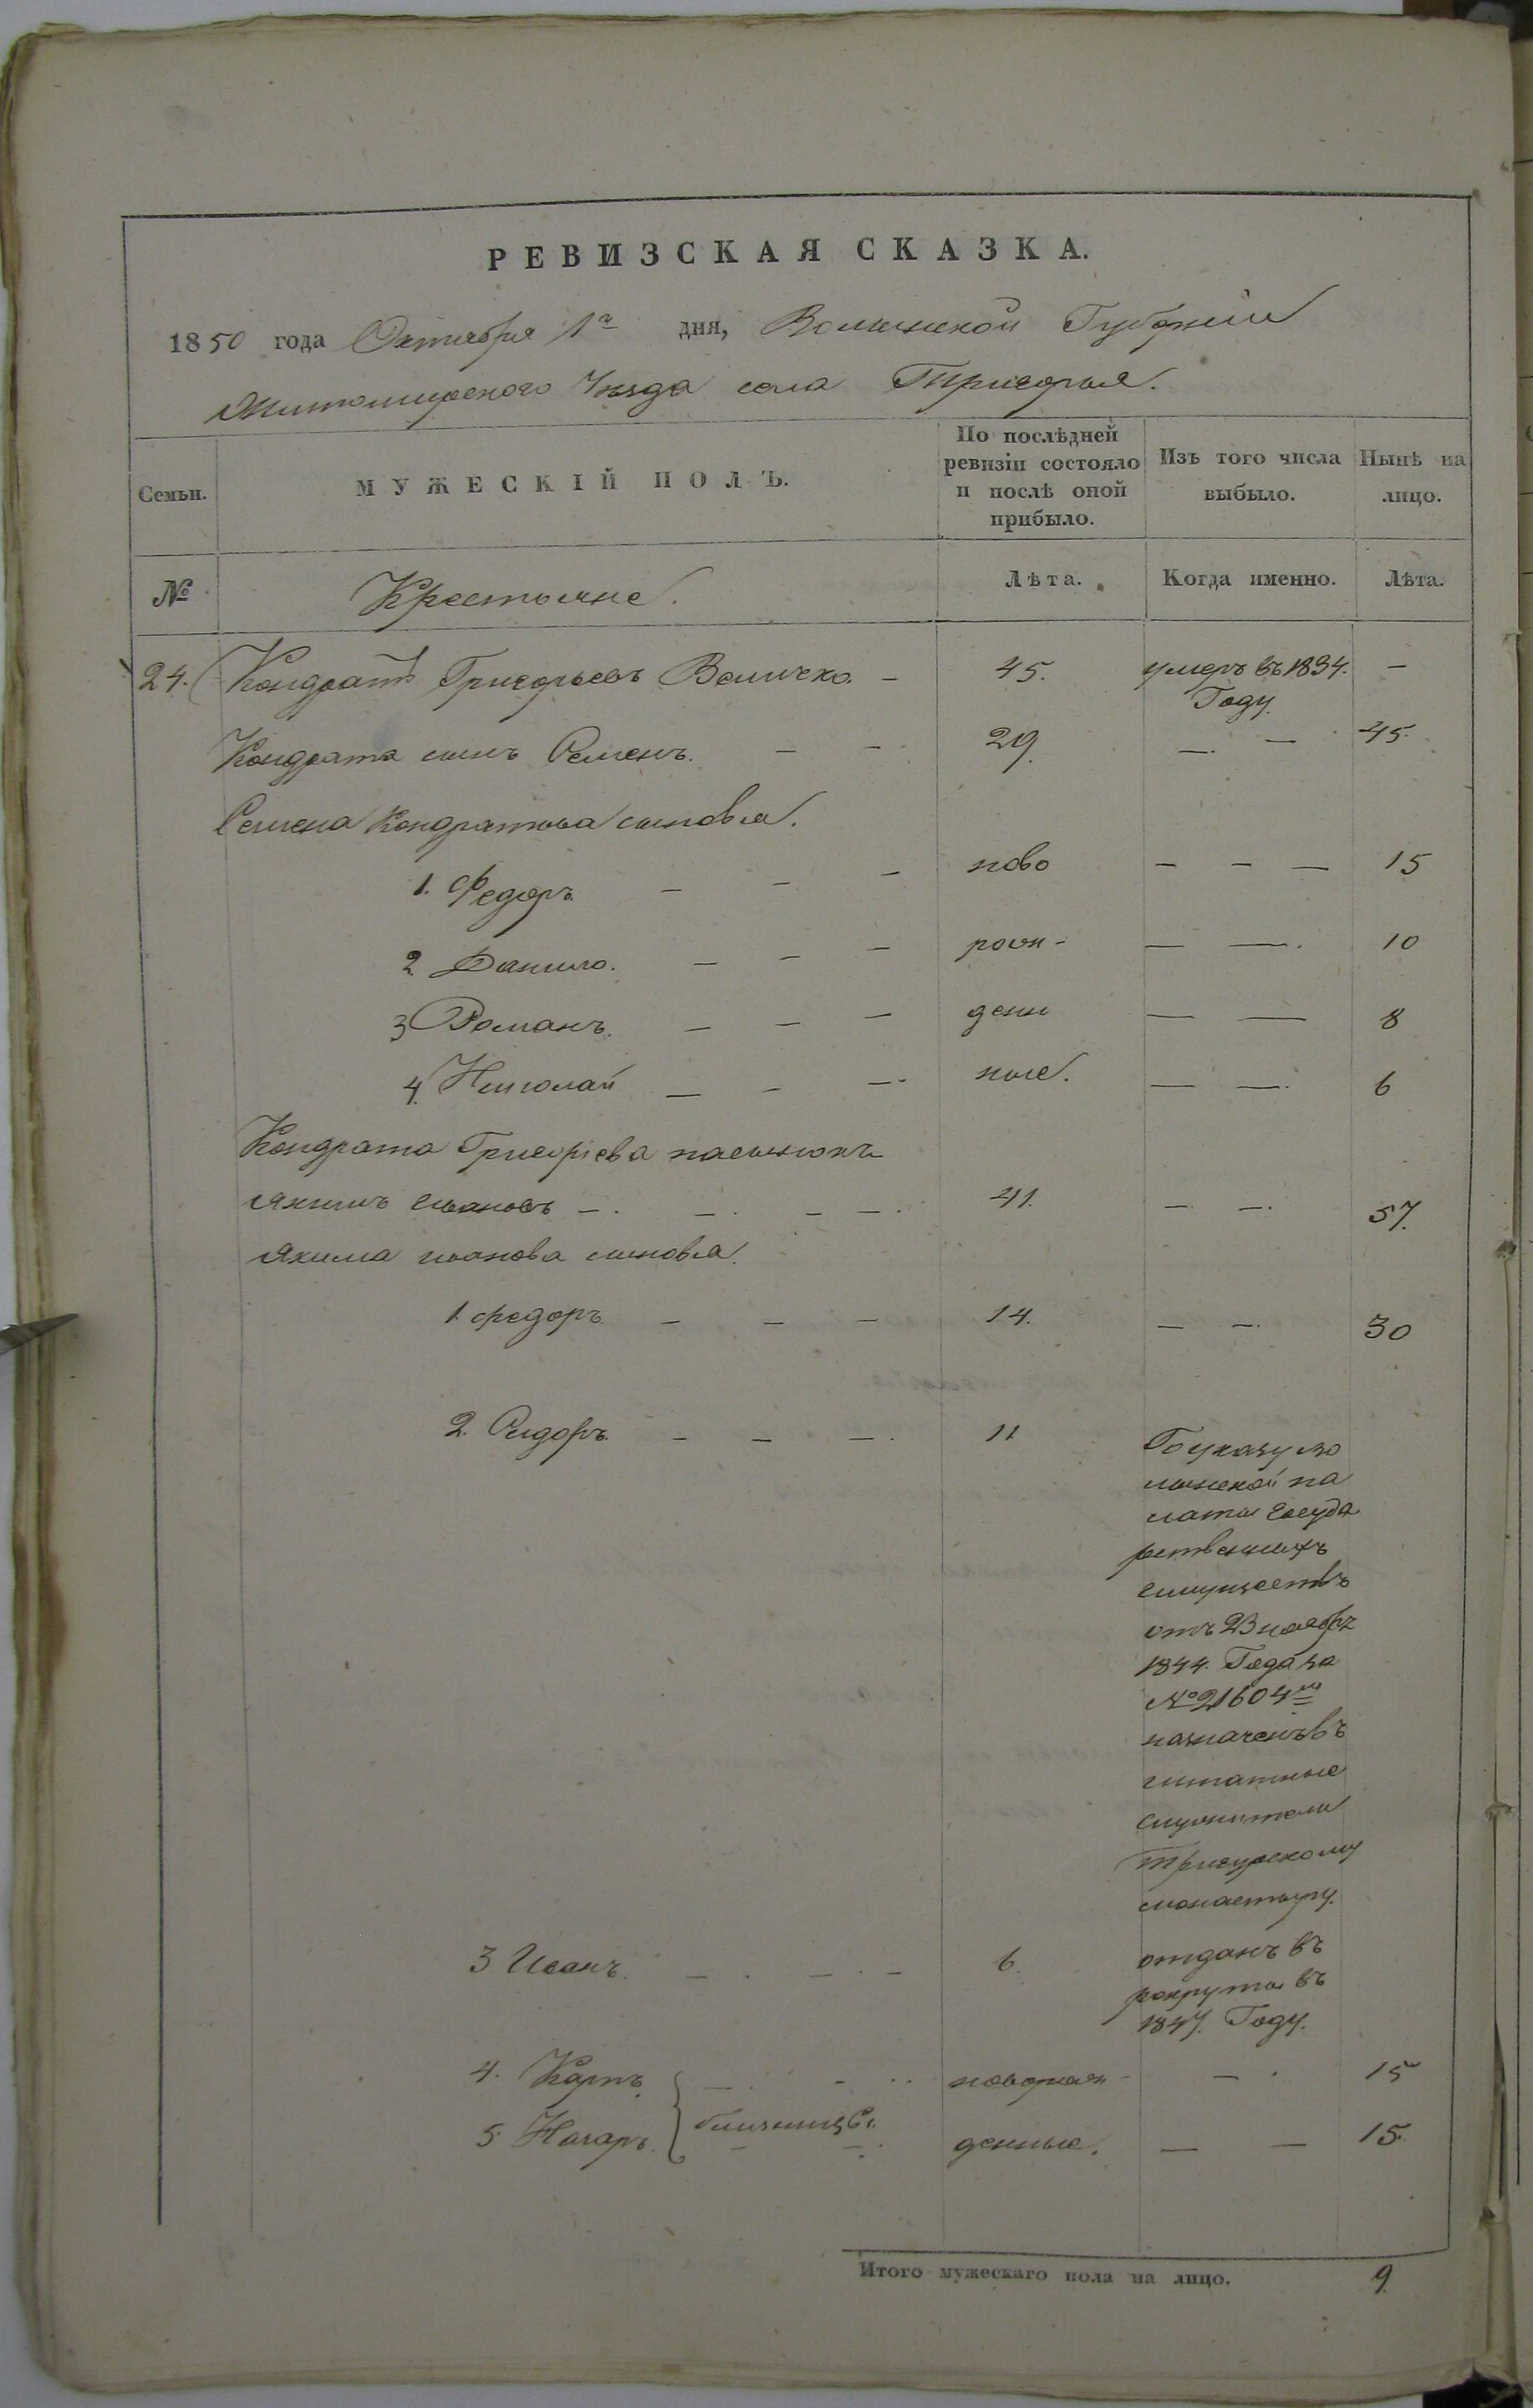 РЕВИЗСКАЯ СКАЗКА.
1850 года Октября 1го дня, Волынской Губернiи
Житомирского Уѣзда села Тригорья.
Семьи.
МУЖЕСКІЙ ПОЛЪ.
По послѣдней ревизіи состояло и послѣ оной прибыло.
Изъ того числа выбыло.
Нынѣ на лицо.
№ Крестьяне. Лѣта. Когда именно. Лѣта.
24. Кондратъ Григорьевъ Величко. — 45. умеръ въ 1834. Году —
Кондрата сынъ Семенъ. — — 29. — — 45.
Семена Кондратьева сыновья.
1. Федоръ — — — ново — — — 15
2 Данило. — — — рож- — — 10
3 Романъ. — — — ден — — 8
4. Николай — — — ные. — — 6
Кондрата Григорiева пасынокъ
Якимъ Ивановъ — — — — 41. — — 57.
Якима иванова сыновья.
1. федоръ — — — 14. — — 30
2. Сидоръ — — — 11
По указу во
лынской па
латы госуда
рственныхъ
имуществъ
отъ 23 ноябр
1844. Года за
№ 21604м
назначенъ въ
штатные
служители
Тригурскому
монастырю.
3 Иванъ. — — — 6. отданъ въ
рекруты въ
1847. Году.
4. Карпъ — — новорож — 15
5. Назаръ. близнецы. — — денные. — — 15.
Итого мужескаго пола на лицо. 9